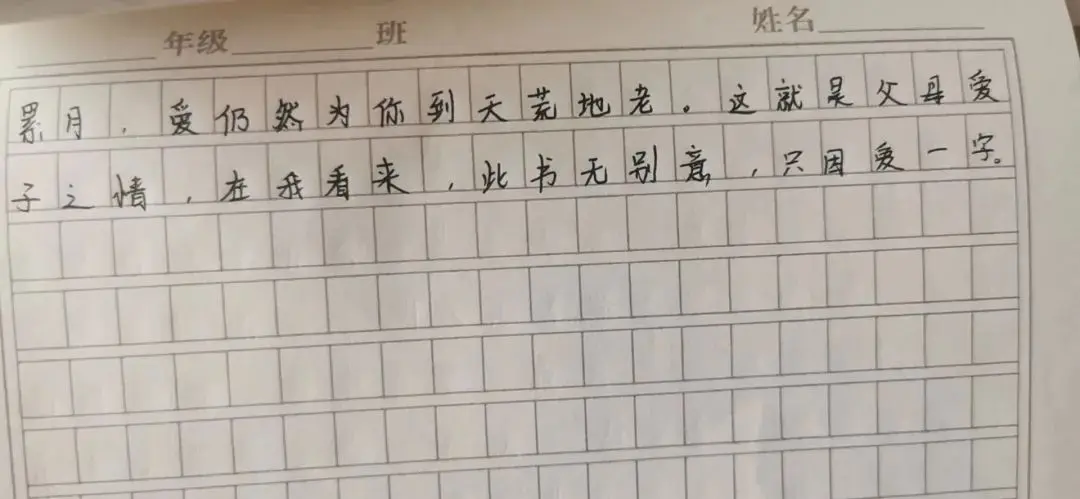 年级 班 姓名
累月，爱仍然为你到天荒地老。这就是父母爱
子之情，在我看来，此书无别意，只因爱一字。